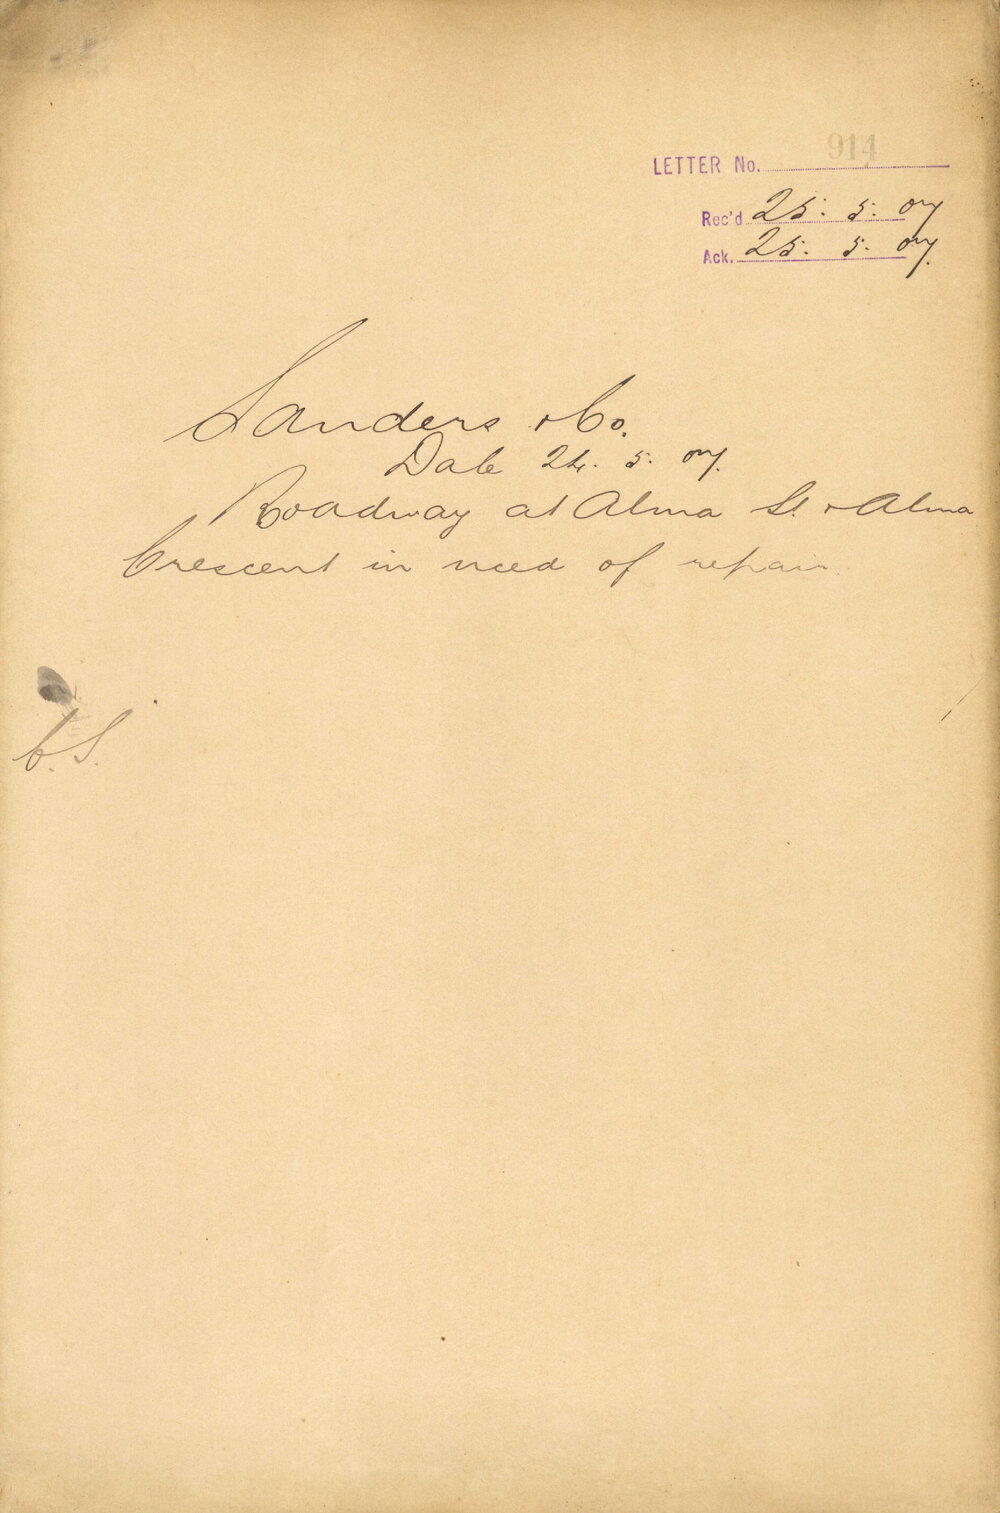 LETTER No. 914
Rec'd 25. 5. 07
Ack. 25. 5. 07.
Sanders & Co.
Date 24. 5. 07.
Roadway at Alma St. & Alma
Crescent in need of repair.
C.S.